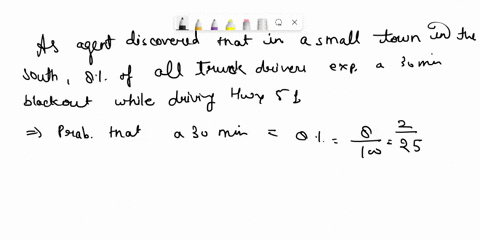 As agent discovered that in a small town in the
south, 8%. of all truck drivers exp. a 30 min
blackout while driving Hwy 51
⇒ Prob. that a 30 min = 8%. = 8/100 = 2/25